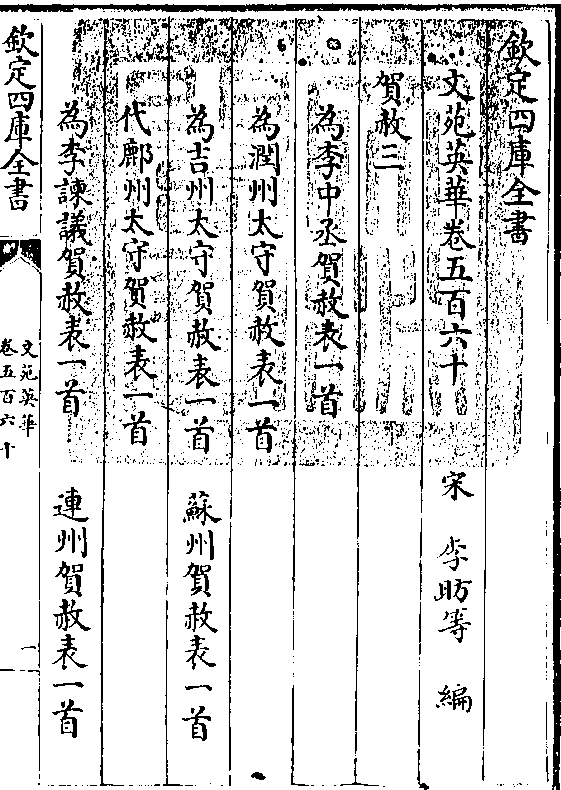 欽定四庫全書
文苑英華卷五百六十
宋 李昉等 編
賀赦三
為李中丞賀赦表一首
為潤州太守賀赦表一首
為吉州太守賀赦表一首 蘇州賀赦表一首
代鄜州太守賀赦表一首
為李諫議賀赦表一首 連州賀赦表一首
欽定四庫全書
文苑英華
卷五百六十
一